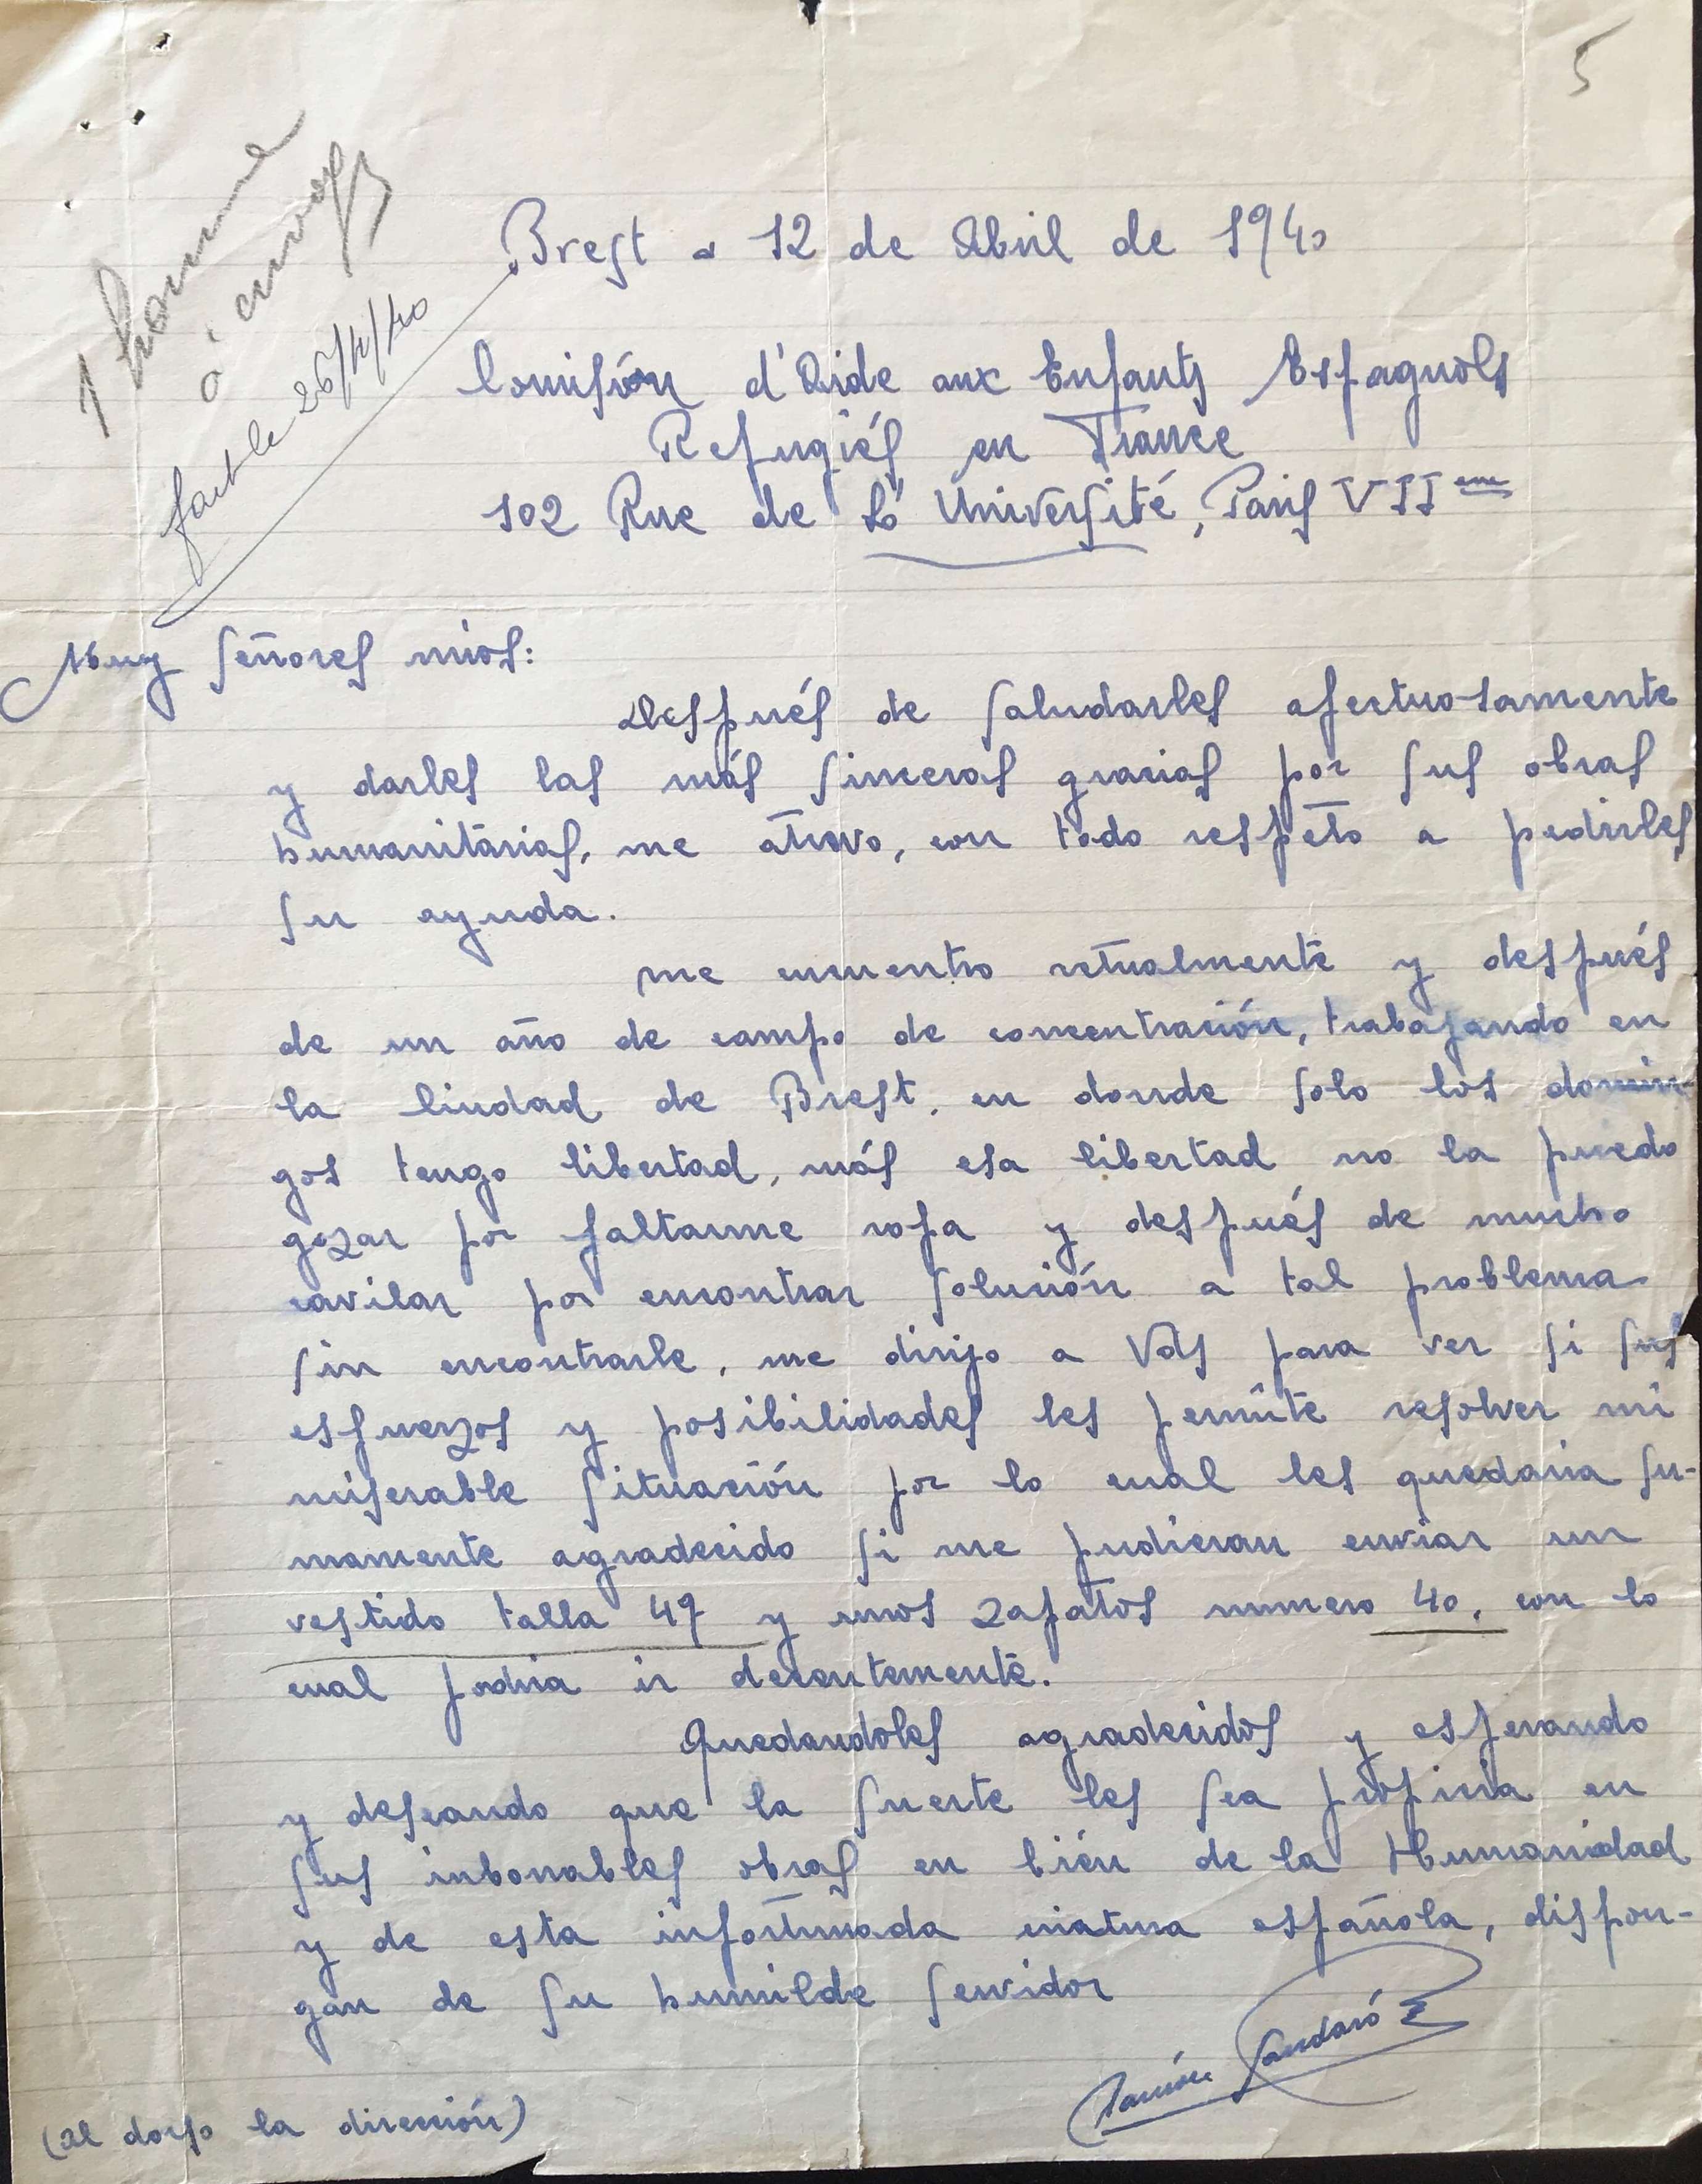 5
1 homme
à envoyer
fait le 26/4/40
Brest a 12 de Abril de 1940
Comisión d'Aide aux Enfants Espagnols
Refugiés en France
102 Rue de L'Université, Paris VII eme
Muy señores mios:
Después de saludarles afectuosamente
y darles las más sinceras gracias por sus obras
humanitárias, me atrevo, con todo respeto a pedirles
su ayuda.
me encuentro actualmente y después
de un año de campo de concentración, trabajando en
la Ciudad de Brest, en donde solo los domin-
gos tengo libertad, más esa libertad no la puedo
gozar por faltarme ropa y después de mucho
cavilar por encontrar solución a tal problema
sin encontrarle, me dirijo a Vds para ver si sus
esfuerzos y posibilidades les permite resolver mi
miserable situación por lo cual les quedaria su-
mamente agradecido si me pudieran enviar un
vestido talla 47 y unos zapatos numero 40, con lo
cual podria ir decentemente.
Quedandoles agradecidos y esperando
y deseando que la suerte les sea propicia en
sus inbonables obras en bién de la Humanidad
y de esta infortunada criatura española, dispon-
gan de su humilde servidor
Ramón Sandaró
(al dorso la dirección)